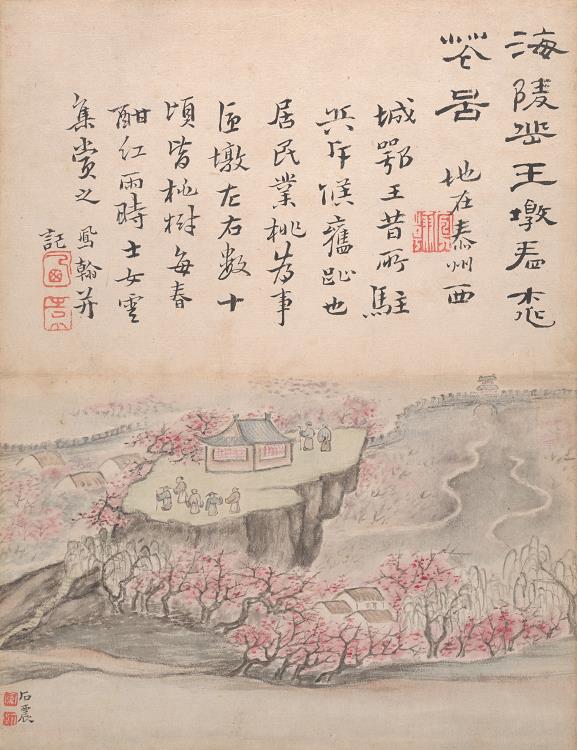 海陵岳王墩看桃
花啚 地在泰州西
城鄂王昔所駐
兵斥堠舊趾也
居民業桃為事
匝墩左右數十
頃皆桃樹每春
酣紅雨時士女雲
集賞之 鳳翰并
記
石震